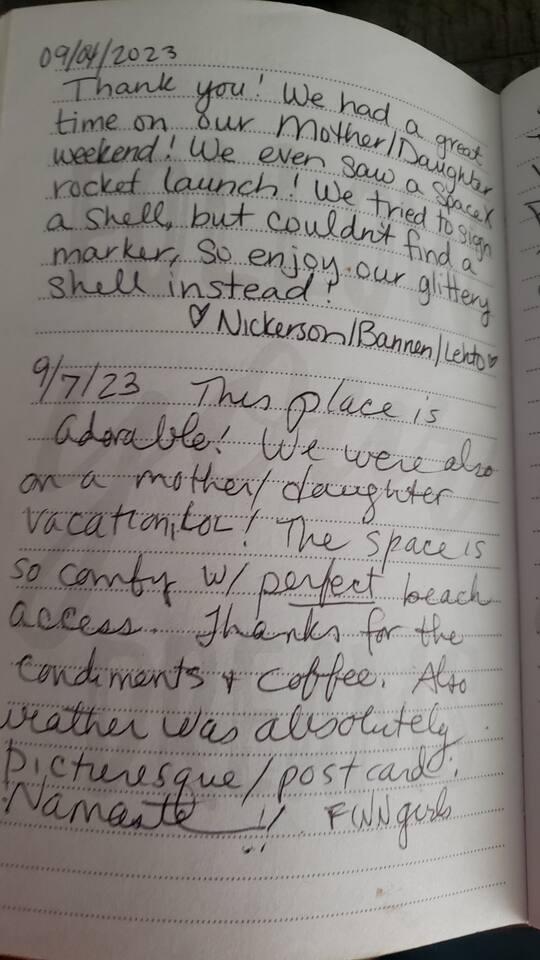 09/04/2023
Thank you! We had a great
time on our Mother/Daughter
weekend! We even saw a SpaceX
rocket launch! We tried to sign
a shell, but couldn't find a
marker, so enjoy our glittery
shell instead!
♡ Nickerson/Bannen/Lehto ♡
9/7/23 This place is
adorable! We were also
on a mother/daughter
vacation, LOL! The space is
so comfy w/ perfect beach
access. Thanks for the
condiments & coffee. Also
weather was absolutely
picturesque/postcard!
Namaste !! FWN girls